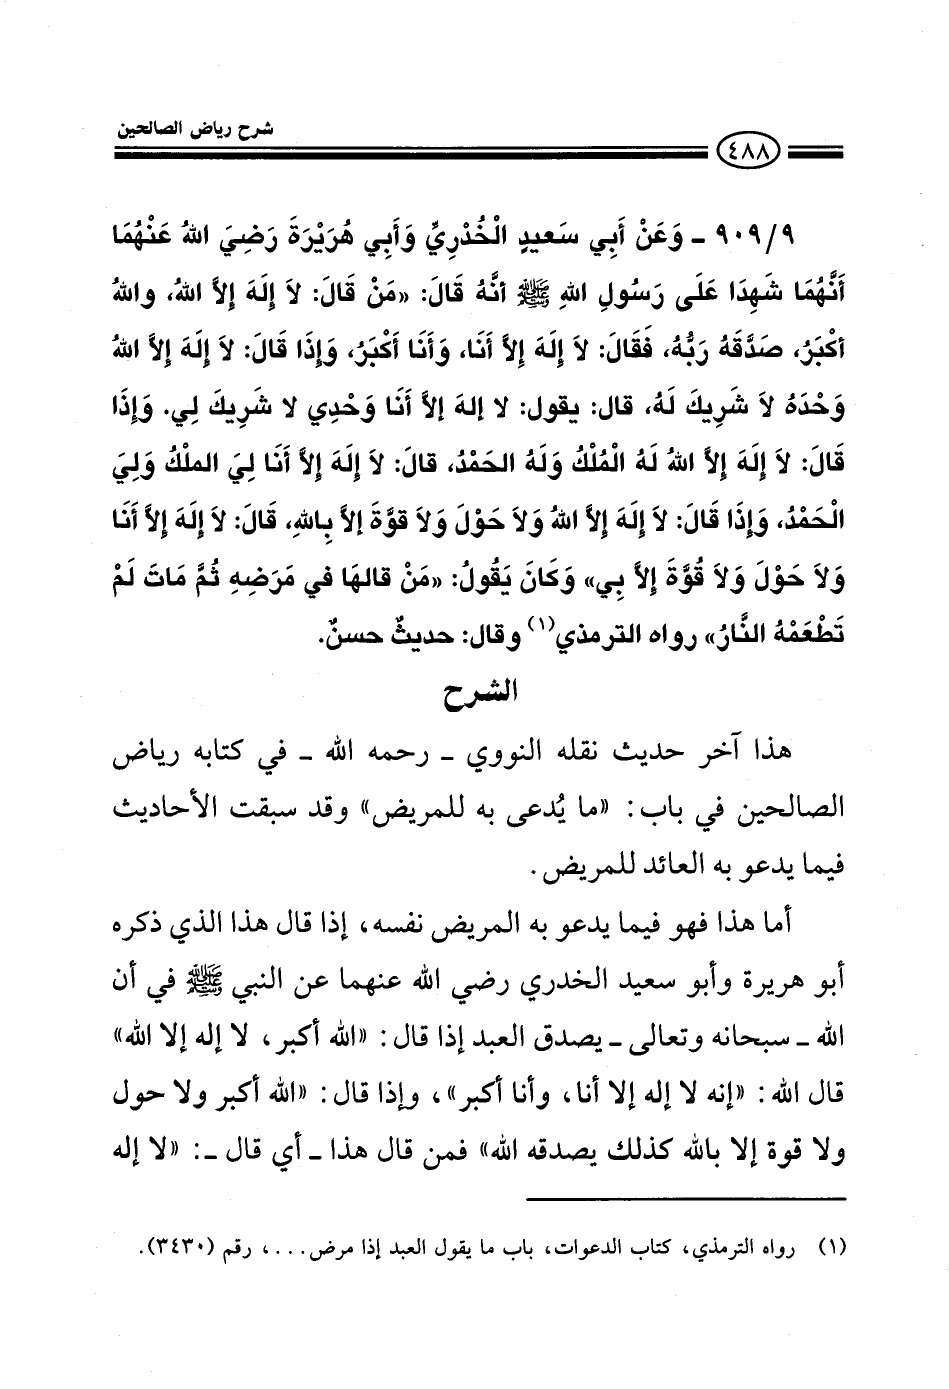 شرح رياض الصالحين
٤٨٨
٩٠٩/٩ ـ وَعَنْ أَبِي سَعِيدٍ الْخُدْرِيِّ وَأَبِي هُرَيْرَةَ رَضِيَ اللهُ عَنْهُمَا
أَنَّهُمَا شَهِدَا عَلَى رَسُولِ اللهِ ﷺ أَنَّهُ قَالَ: «مَنْ قَالَ: لاَ إِلَهَ إِلاَّ اللهُ، واللهُ
أَكْبَرُ، صَدَّقَهُ رَبُّهُ، فَقَالَ: لاَ إِلَهَ إِلاَّ أَنَا، وَأَنَا أَكْبَرُ، وَإِذَا قَالَ: لاَ إِلَهَ إِلاَّ اللهُ
وَحْدَهُ لاَ شَرِيكَ لَهُ، قال: يقول: لا إله إلاَّ أَنَا وَحْدِي لا شَرِيكَ لِي. وَإِذَا
قَالَ: لاَ إِلَهَ إِلاَّ اللهُ لَهُ الْمُلْكُ وَلَهُ الحَمْدُ، قالَ: لاَ إِلَهَ إِلاَّ أَنَا لِيَ الملْكُ وَلِيَ
الْحَمْدُ، وَإِذَا قَالَ: لاَ إِلَهَ إِلاَّ اللهُ وَلاَ حَوْلَ وَلاَ قوَّةَ إِلاَّ بِاللهِ، قَالَ: لاَ إِلَهَ إِلاَّ أَنَا
وَلاَ حَوْلَ وَلاَ قُوَّةَ إِلاَّ بِي» وَكَانَ يَقُولُ: «مَنْ قالهَا في مَرَضِهِ ثُمَّ مَاتَ لَمْ
تَطْعَمْهُ النَّارُ» رواه الترمذي(١) وقال: حديثٌ حسنٌ.
الشرح
هذا آخر حديث نقله النووي ـ رحمه الله ـ في كتابه رياض
الصالحين في باب: «ما يُدعى به للمريض» وقد سبقت الأحاديث
فيما يدعو به العائد للمريض.
أما هذا فهو فيما يدعو به المريض نفسه، إذا قال هذا الذي ذكره
أبو هريرة وأبو سعيد الخدري رضي الله عنهما عن النبي ﷺ في أن
الله ـ سبحانه وتعالى ـ يصدق العبد إذا قال: «الله أكبر، لا إله إلا الله»
قال الله: «إنه لا إله إلا أنا، وأنا أكبر»، وإذا قال: «الله أكبر ولا حول
ولا قوة إلا بالله كذلك يصدقه الله» فمن قال هذا ـ أي قال ـ: «لا إله
(١) رواه الترمذي، كتاب الدعوات، باب ما يقول العبد إذا مرض...، رقم (٣٤٣٠).